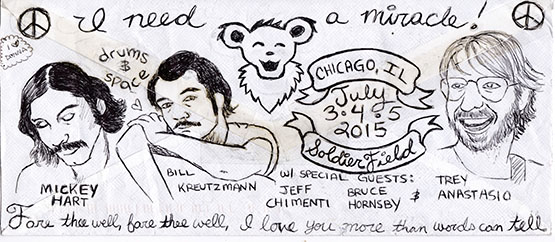 I need a miracle!
drums
$
space
CHICAGO, IL
July
3·4·5
2015
Soldier Field
MICKEY
HART
BILL
KREUTZMANN
W/ SPECIAL GUESTS:
JEFF
CHIMENTI
BRUCE
HORNSBY $
TREY
ANASTASIO
Fare thee well, fare thee well, I love you more than words can tell